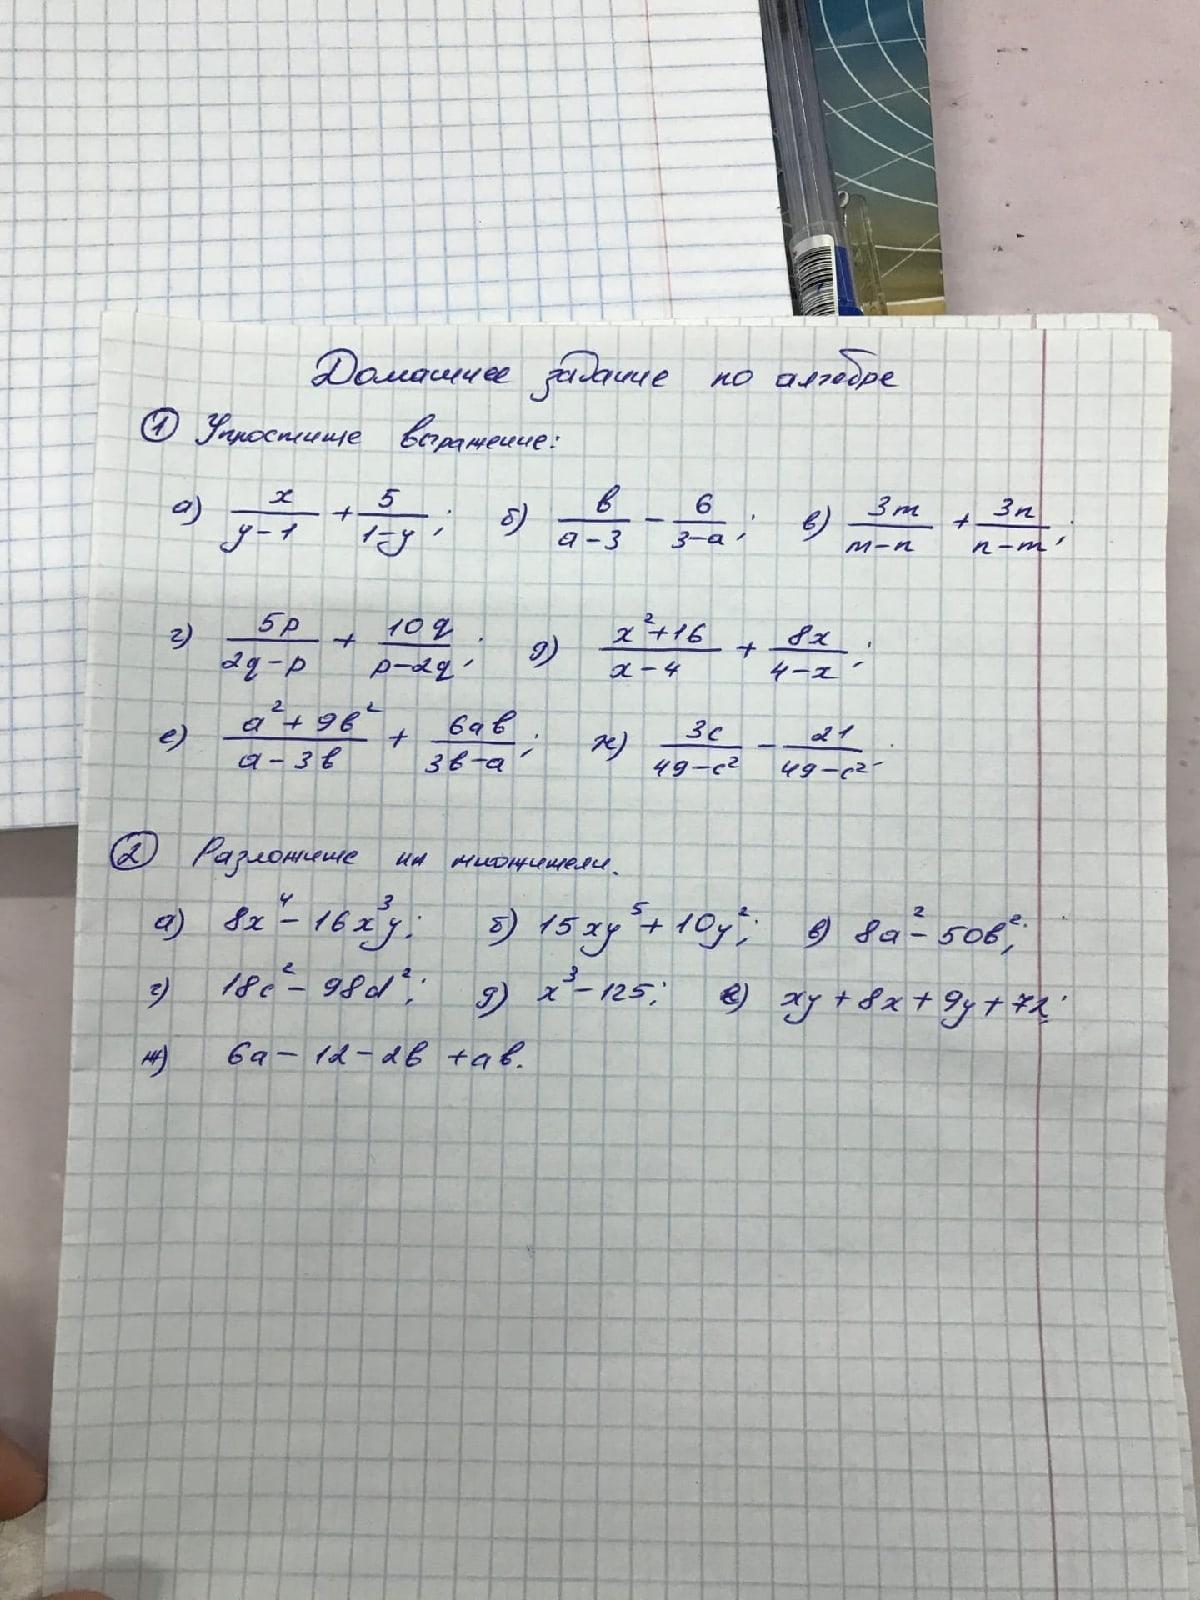 Домашнее задание по алгебре
① Упростите выражение:
а) x/(y-1) + 5/(1-y); б) b/(a-3) - 6/(3-a); в) 3m/(m-n) + 3n/(n-m);
г) 5p/(2q-p) + 10q/(p-2q); д) (x²+16)/(x-4) + 8x/(4-x);
е) (a²+9b²)/(a-3b) + 6ab/(3b-a); ж) 3c/(49-c²) - 21/(49-c²).
② Разложите на множители.
а) 8x⁴-16x³y; б) 15xy⁵+10y²; в) 8a²-50b²;
г) 18c²-98d²; д) x³-125; е) xy+8x+9y+72;
ж) 6a-12-2b+ab.